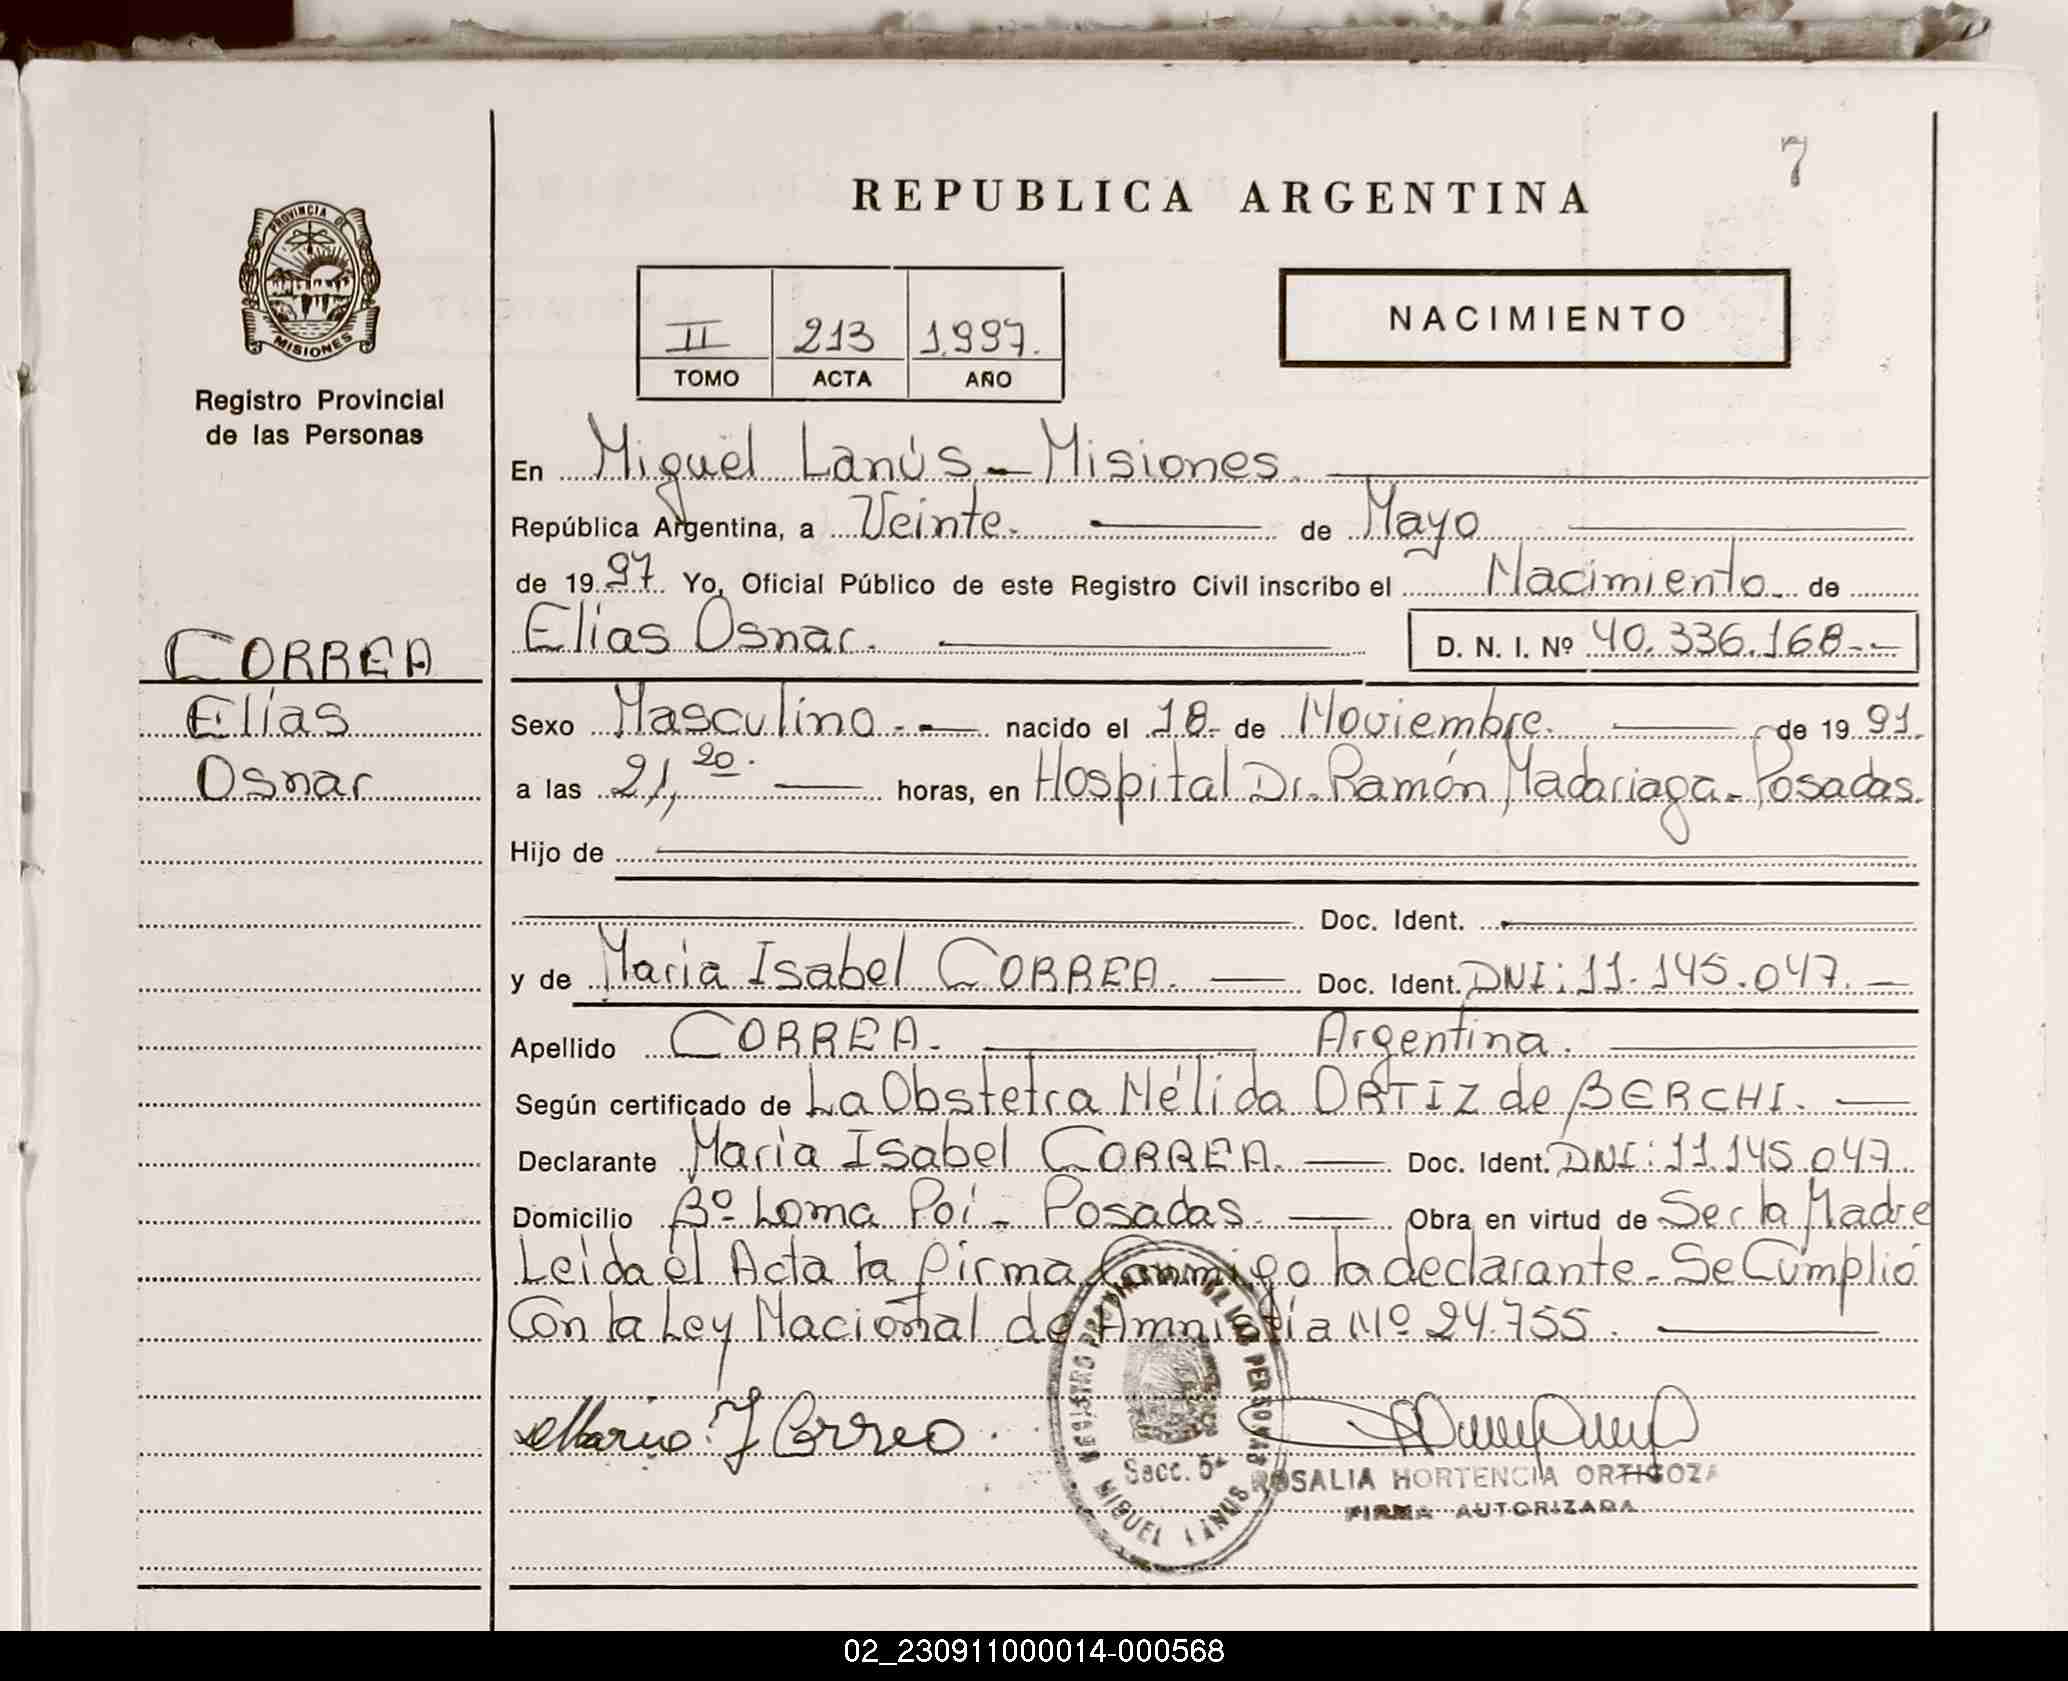 7
REPUBLICA ARGENTINA
PROVINCIA DE
MISIONES
Registro Provincial
de las Personas
II 213 1.997.
TOMO ACTA AÑO
NACIMIENTO
En Miguel Lanús - Misiones.
República Argentina, a Veinte. de Mayo
de 1997 Yo, Oficial Público de este Registro Civil inscribo el Nacimiento. de
Elías Osnar. D. N. I. Nº 40.336.168.-
CORREA
Elías
Osnar
Sexo Masculino.- nacido el 18. de Noviembre. de 1991.
a las 21,20. horas, en Hospital Dr. Ramón Madariaga. Posadas.
Hijo de
Doc. Ident.
y de María Isabel CORREA. Doc. Ident. DNI: 11.145.047.
Apellido CORREA. Argentina.
Según certificado de La Obstetra Nélida ORTIZ de BERCHI.
Declarante María Isabel CORREA. Doc. Ident. DNI: 11.145.047
Domicilio Bº Loma Poí - Posadas. Obra en virtud de Ser la Madre
Leída el Acta la firma Conmigo la declarante. Se Cumplió
Con la Ley Nacional de Amnistía Nº 24.755.
María I Correa.
REGISTRO PROVINCIAL DE LAS PERSONAS
Secc. 5ª
MIGUEL LANUS
ROSALIA HORTENCIA ORTIGOZA
FIRMA AUTORIZADA
02_230911000014-000568